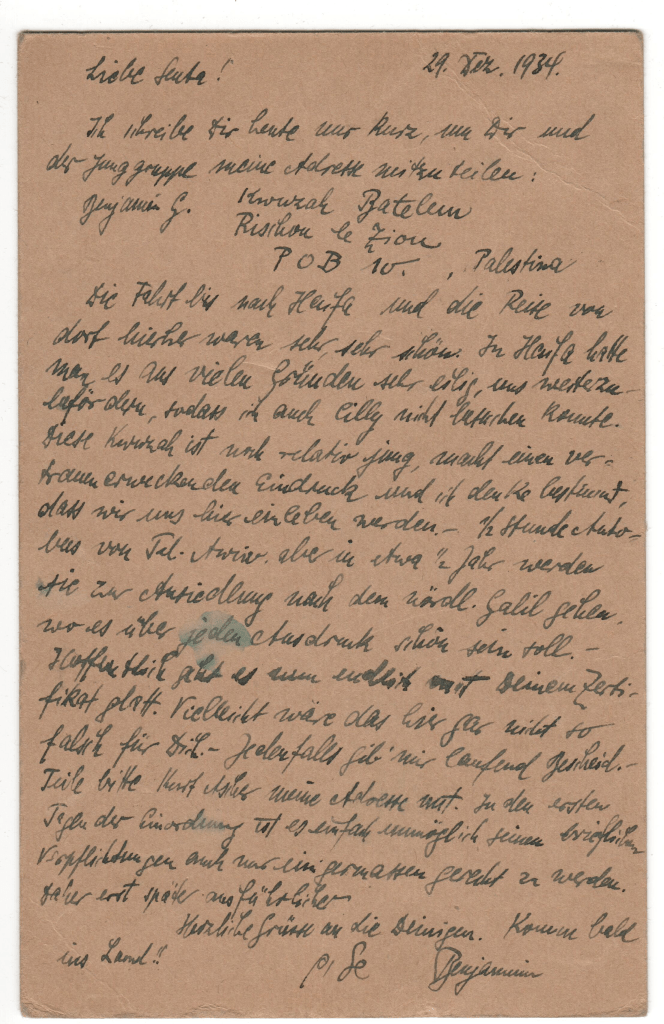 Liebe Senta!
29. Dez. 1934.
Ich schreibe Dir heute nur kurz, um Dir und
der Junggruppe meine Adresse mitzuteilen:
Benjamin G. Kwuzah Batelem
Rischon le Zion
P O B 10. , Palestina
Die Fahrt bis nach Haifa und die Reise von
dort hierher waren sehr, sehr schön. In Haifa hatte
man es aus vielen Gründen sehr eilig, uns weiterzu-
befördern, sodass ich auch Cilly nicht besuchen konnte.
Diese Kwuzah ist noch relativ jung, macht einen ver-
trauenerweckenden Eindruck und ich denke bestimmt,
dass wir uns hier einleben werden. – ½ Stunde Auto-
bus von Tel-Awiw. aber in etwa ½ Jahr werden
sie zur Ansiedlung nach dem nördl. Galil gehen,
wo es über jeden Ausdruck schön sein soll. –
Hoffentlich geht es nun endlich mit Deinem Zerti-
fikat glatt. Vielleicht wäre das hier gar nicht so
falsch für Dich. – Jedenfalls gib' mir laufend Bescheid. –
Teile bitte Kurt Ascher meine Adresse mit. In den ersten
Tagen der Einordnung ist es einfach unmöglich seinen brieflichen
Verpflichtungen auch nur einigermassen gerecht zu werden.
Daher erst später ausführlicher
Herzliche Grüsse an die Deinigen. Komm bald
ins Land!!
Benjamin